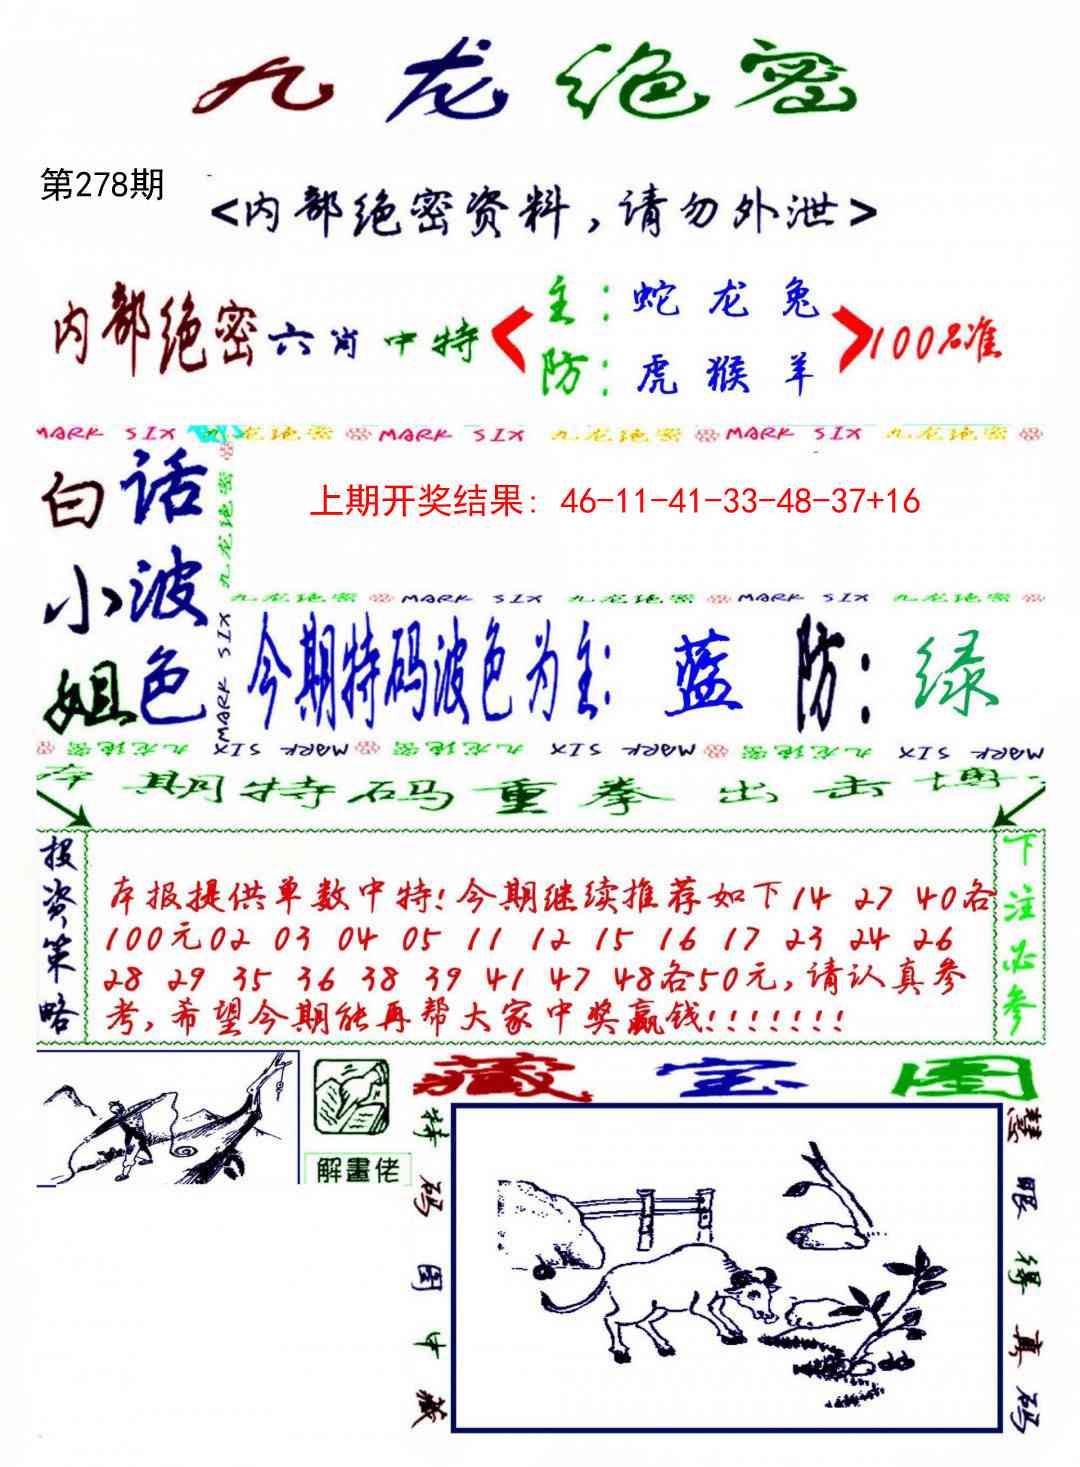 九龙绝密
第278期
<内部绝密资料，请勿外泄>
内部绝密六肖中特
主：蛇 龙 兔
防：虎 猴 羊
100%准
MARK SIX 九龙绝密 MARK SIX 九龙绝密 MARK SIX 九龙绝密
白小姐
话波色
九龙绝密
MARK SIX
上期开奖结果：46-11-41-33-48-37+16
九龙绝密 MARK SIX 九龙绝密 MARK SIX 九龙绝密
今期特码波色为主：蓝 防：绿
九龙绝密 MARK SIX 九龙绝密 MARK SIX 九龙绝密 MARK SIX
本期特码重拳出击博
投资策略
本报提供单数中特！今期继续推荐如下14 27 40各
100元02 03 04 05 11 12 15 16 17 23 24 26
28 29 35 36 38 39 41 47 48各50元，请认真参
考，希望今期能再帮大家中奖赢钱！！！！！！！
下注必参
解畫佬
藏宝图
特码图中藏
慧眼得真码